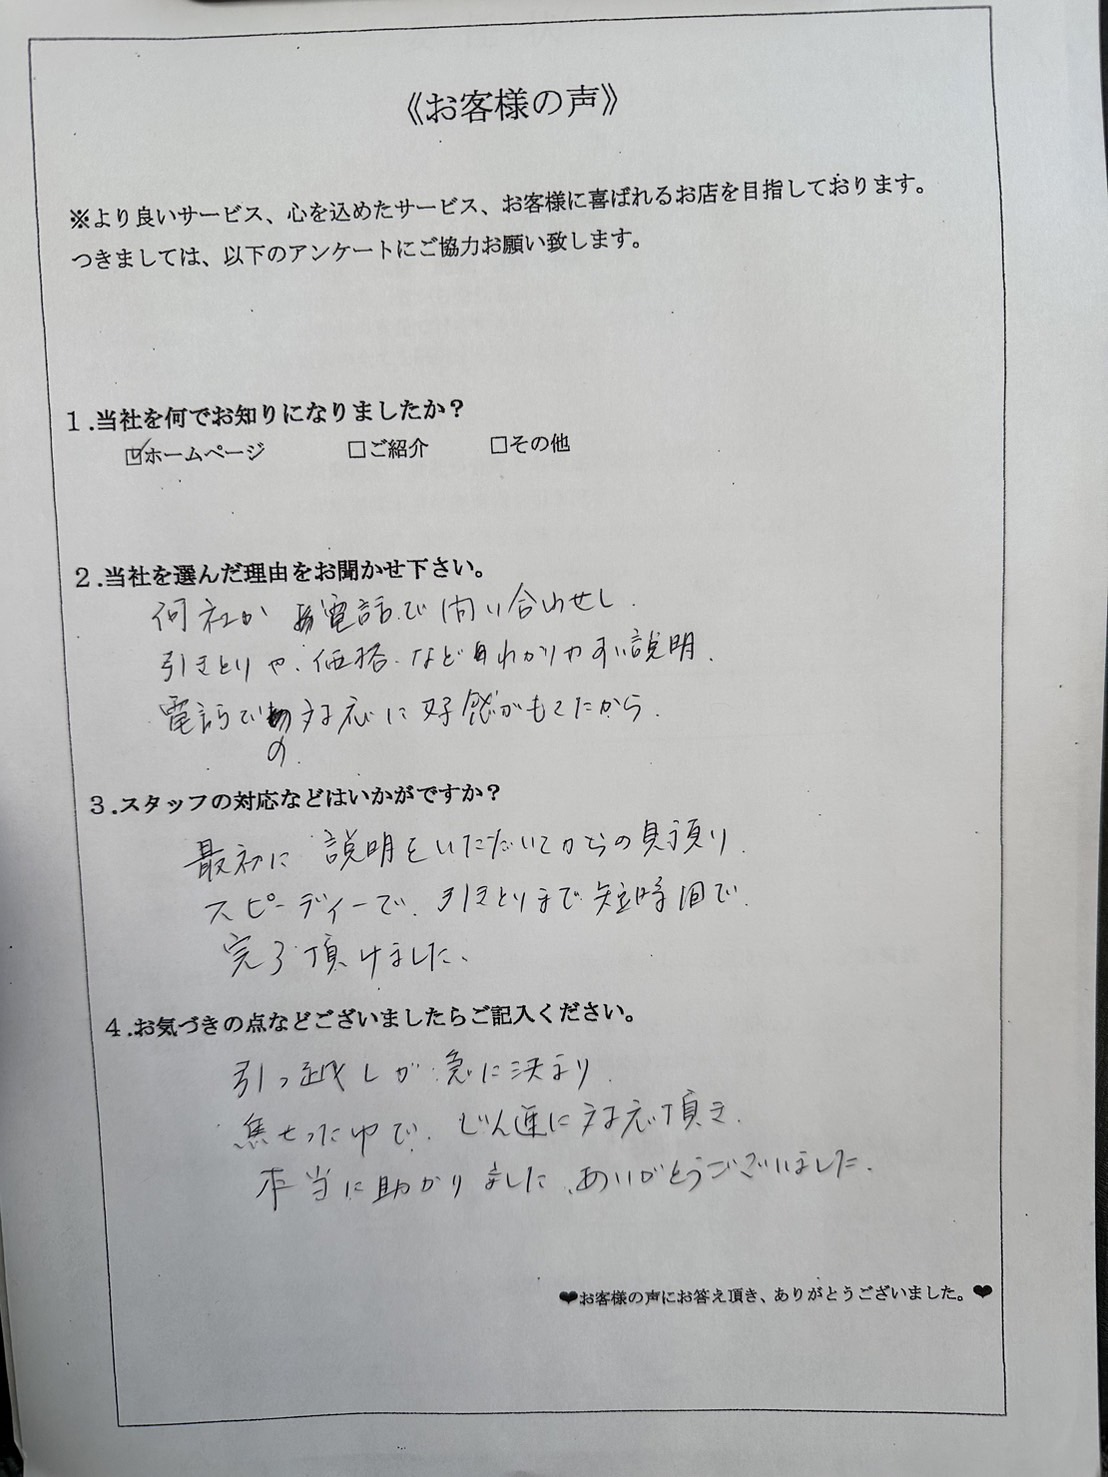 《お客様の声》
※より良いサービス、心を込めたサービス、お客様に喜ばれるお店を目指しております。
つきましては、以下のアンケートにご協力お願い致します。
１.当社を何でお知りになりましたか？
☑ホームページ □ご紹介 □その他
２.当社を選んだ理由をお聞かせ下さい。
何社か お電話で問い合わせし.
引きとりや.価格.など わかりやすい説明.
電話での対応に好感がもてたから.
３.スタッフの対応などはいかがですか？
最初に 説明をいただいてからの見積り.
スピーディーで.引きとりまで短時間で.
完了頂けました、
４.お気づきの点などございましたらご記入ください。
引っ越しが急に決まり.
焦せった中で.じん速に対応頂き.
本当に助かりました.ありがとうございました.
❤お客様の声にお答え頂き、ありがとうございました。❤